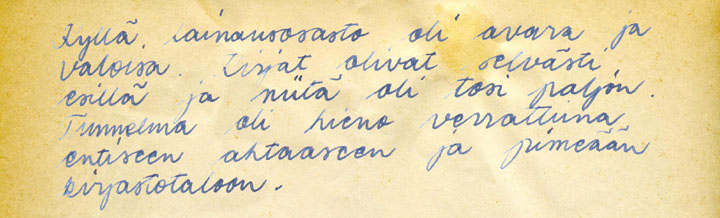 Kyllä, lainausosasto oli avara ja
valoisa. Kirjat olivat selvästi
esillä ja niitä oli tosi paljon.
Tunnelma oli hieno verrattuna
entiseen ahtaaseen ja pimeään
kirjastotaloon.